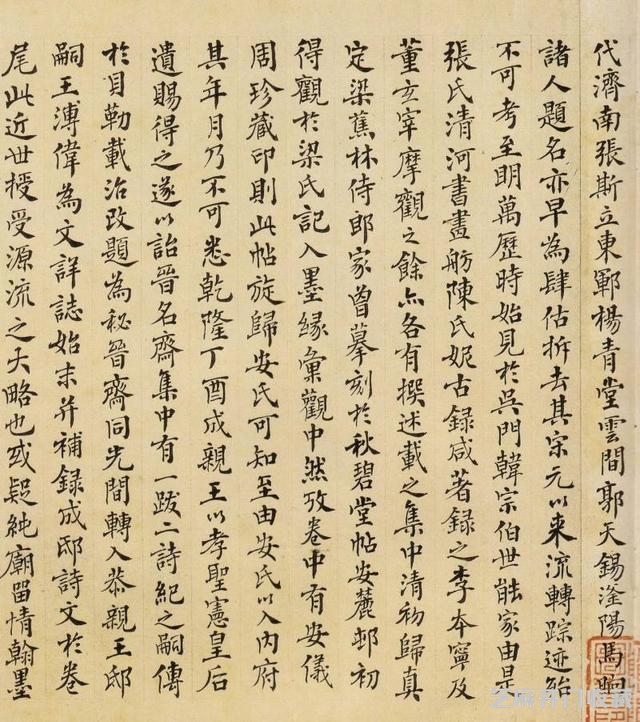 代濟南張斯立東鄆楊青堂雲間郭天錫滏陽馬昫
諸人題名亦早為肆估拆去其宋元以来流轉踪迹殆
不可考至明萬歷時始見於吳門韓宗伯世能家由是
張氏清河書畫舫陳氏妮古録咸著録之李本寧及
董玄宰摩觀之餘亦各有撰述載之集中清初歸真
定梁蕉林侍郎家曾摹刻於秋碧堂帖安麓邨初
得觀於梁氏記入墨緣彙觀中然攷卷中有安儀
周珍藏印則此帖旋歸安氏可知至由安氏以入内府
其年月乃不可悉乾隆丁酉成親王以孝聖憲皇后
遺賜得之遂以詒晉名齋集中有一跋二詩紀之嗣傳
於貝勒載治改題為秘晉齋同光間轉入恭親王邸
嗣王溥偉為文詳誌始末并補録成邸詩文於卷
尾此近世授受源流之大略也或疑純廟留情翰墨